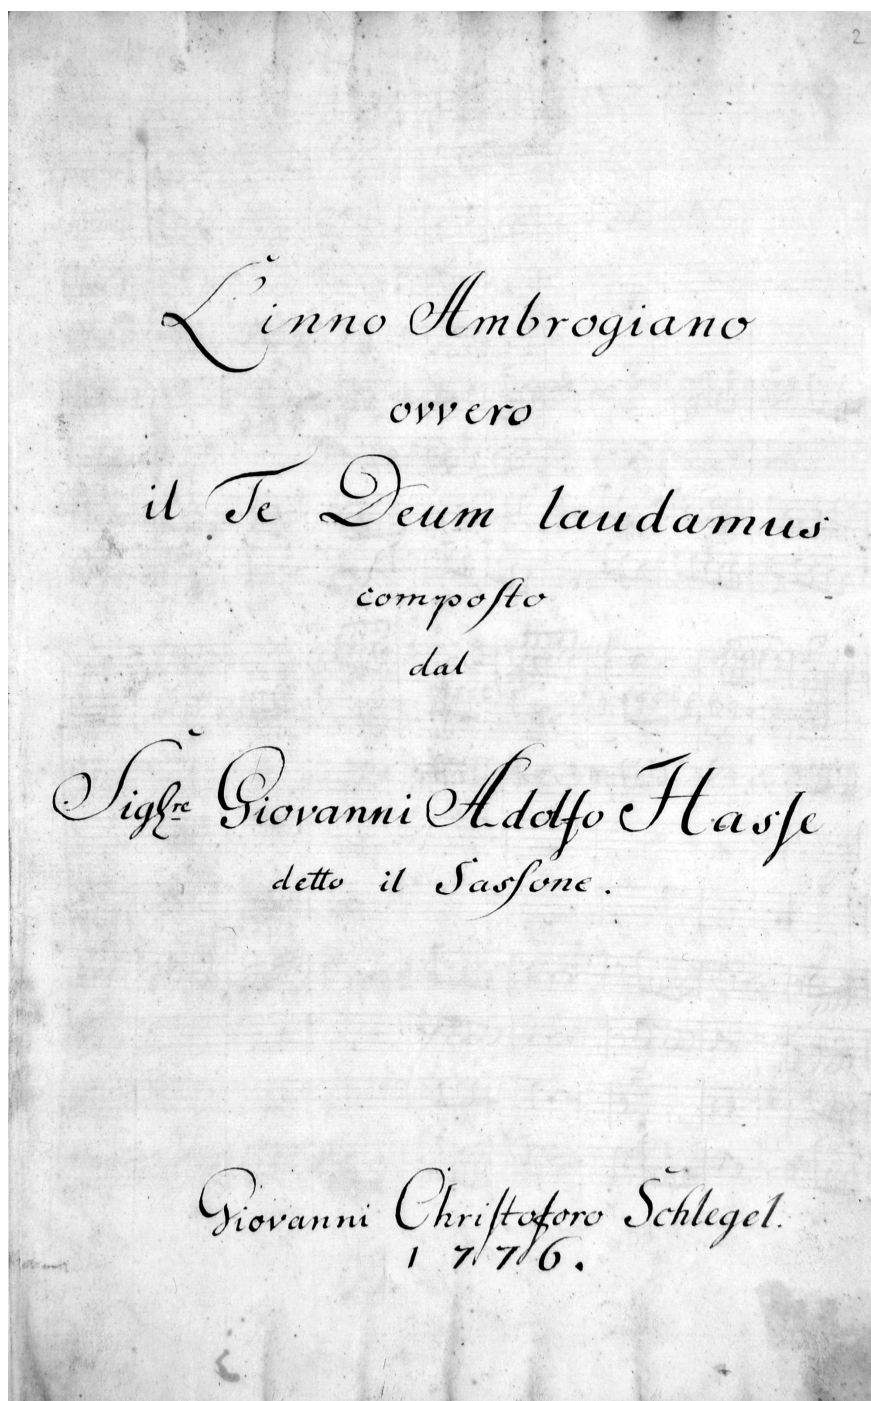 2
L'inno Ambrogiano
ovvero
il Te Deum laudamus
compoſto
dal
Sigh.re Giovanni Adolfo Hasſe
detto il Sasſone.
Giovanni Chriſtoforo Schlegel.
1776.